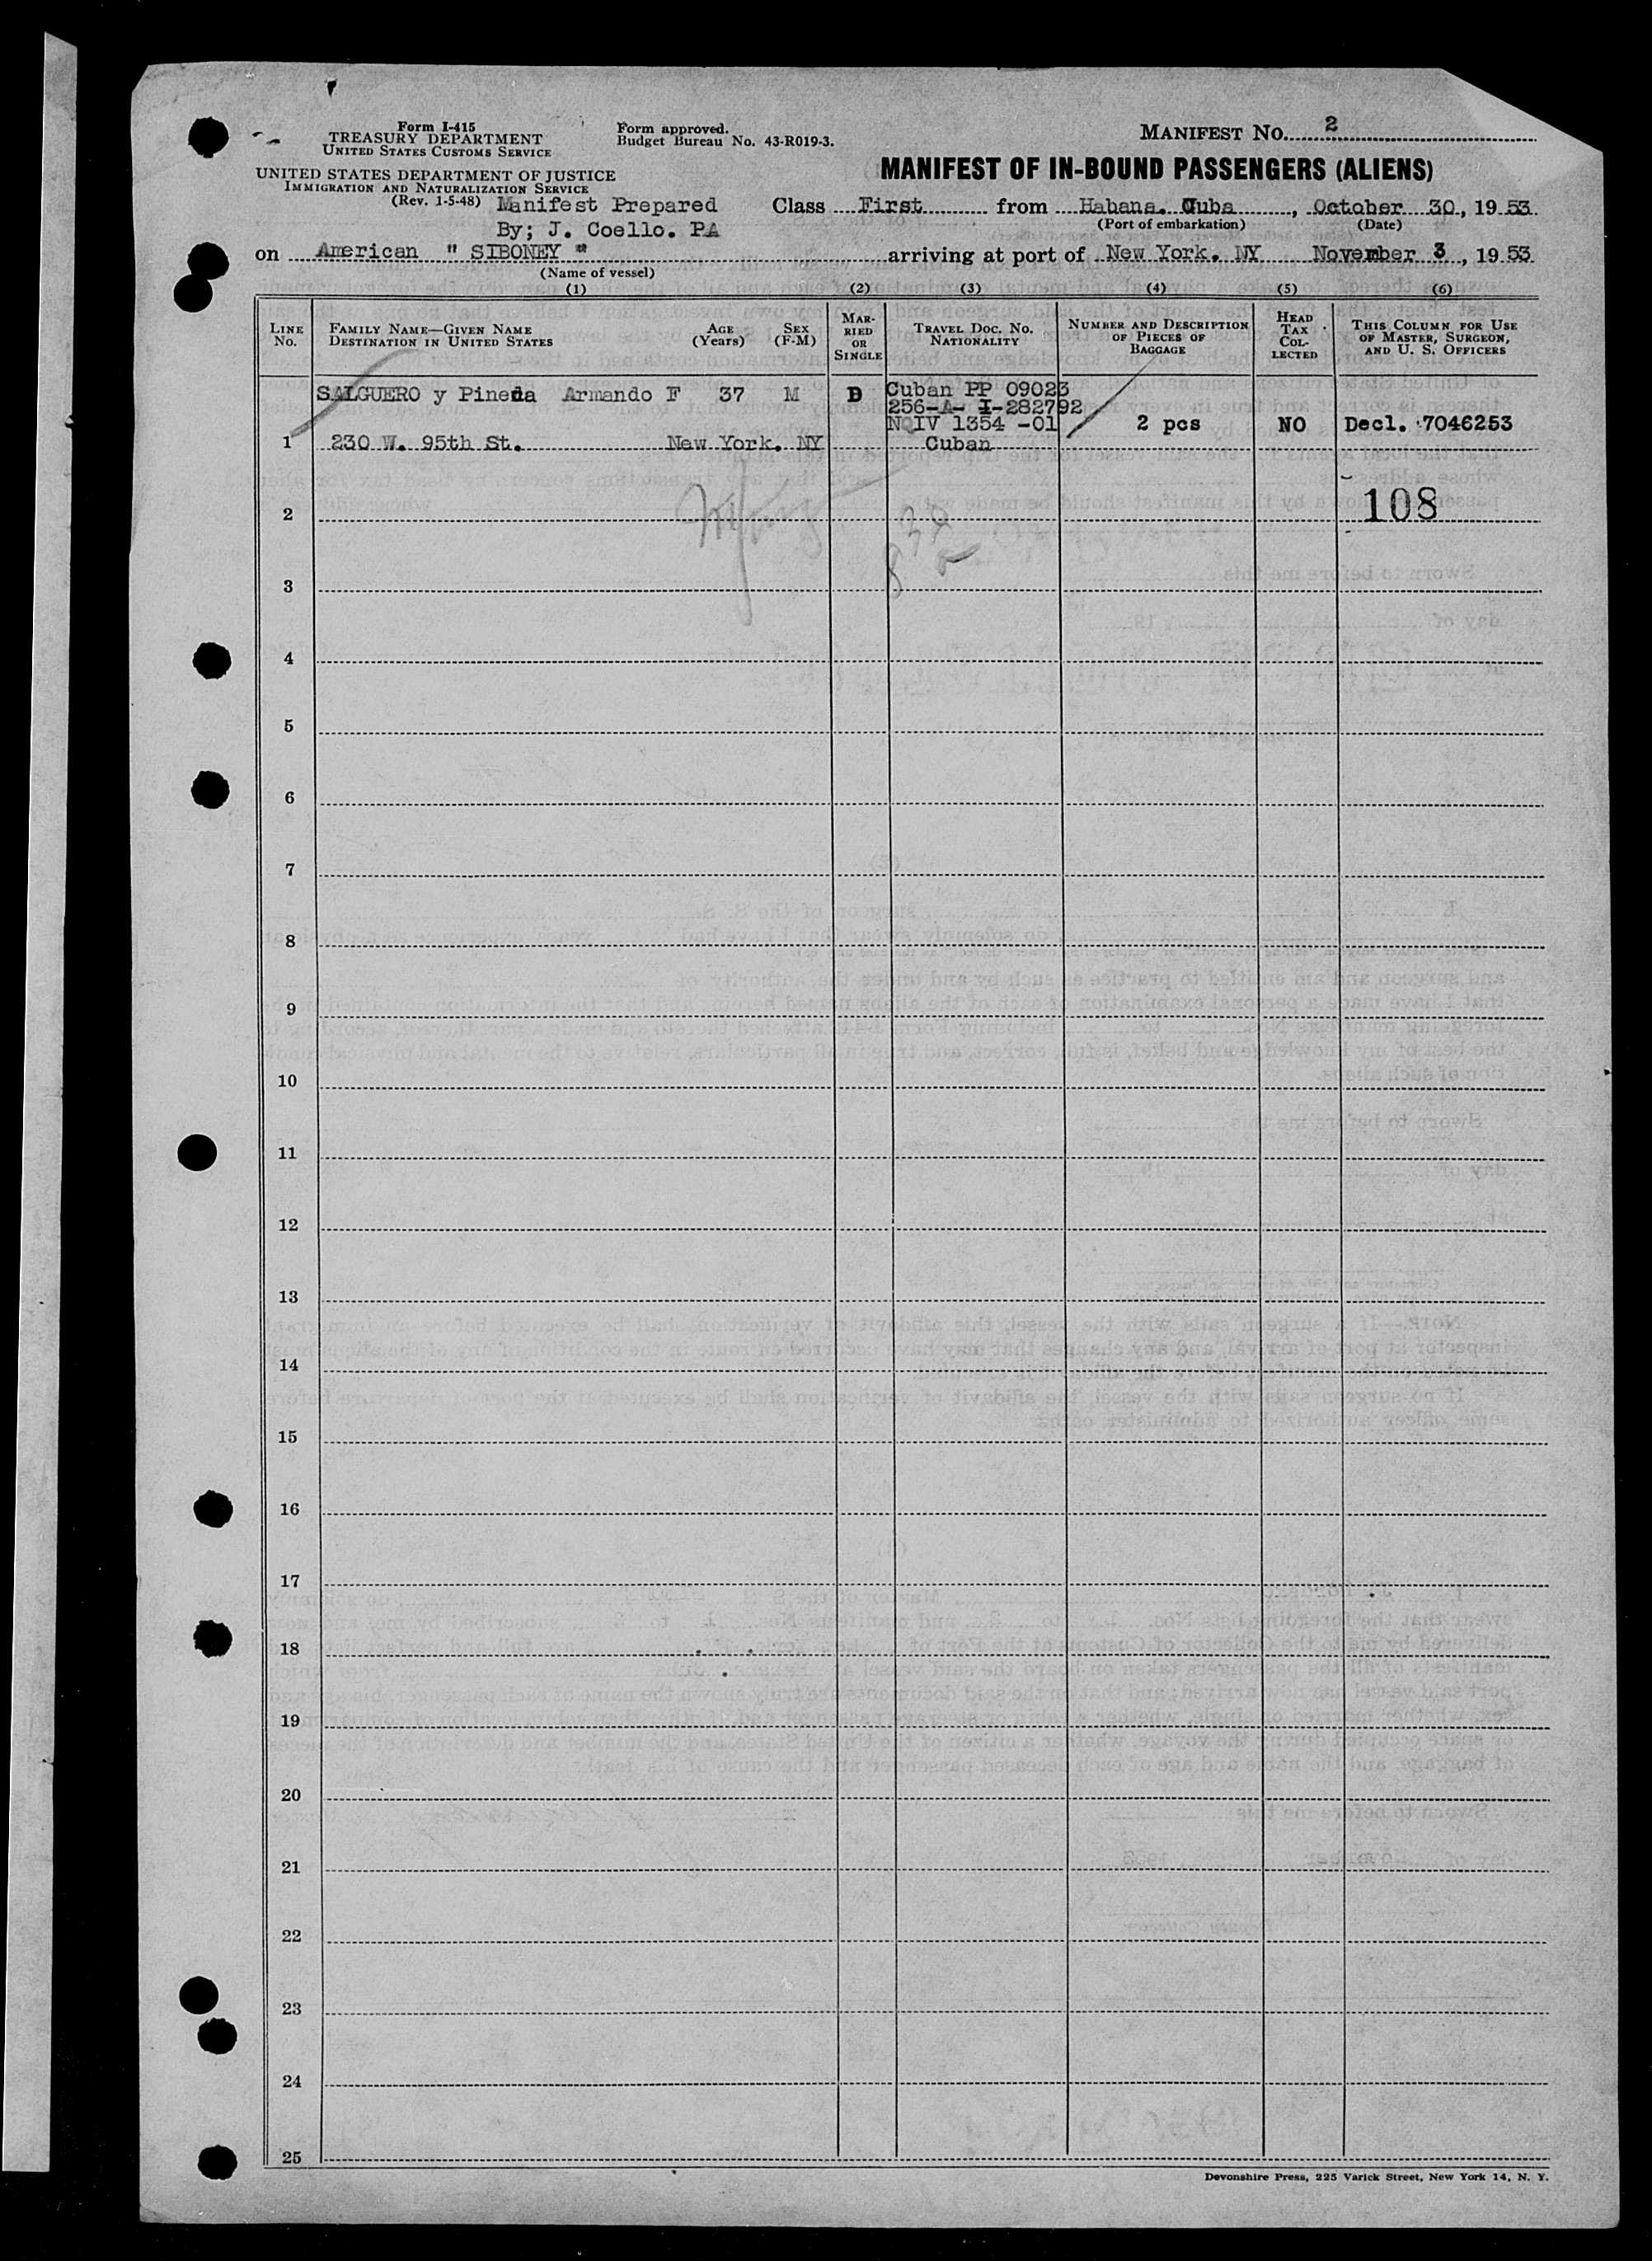 Form I-415
TREASURY DEPARTMENT
UNITED STATES CUSTOMS SERVICE
Form approved.
Budget Bureau No. 43-R019-3.
MANIFEST NO. 2
UNITED STATES DEPARTMENT OF JUSTICE
IMMIGRATION AND NATURALIZATION SERVICE
(Rev. 1-5-48)
MANIFEST OF IN-BOUND PASSENGERS (ALIENS)
Manifest Prepared
By; J. Coello. PA
Class First from Habana. Cuba, October 30, 1953
(Port of embarkation) (Date)
on American " SIBONEY " arriving at port of New York. NY November 3, 1953
(Name of vessel)
(1) (2) (3) (4) (5) (6)
LINE No.
FAMILY NAME—GIVEN NAME
DESTINATION IN UNITED STATES
AGE (Years)
SEX (F-M)
MARRIED OR SINGLE
TRAVEL DOC. NO.
NATIONALITY
NUMBER AND DESCRIPTION OF PIECES OF BAGGAGE
HEAD TAX COLLECTED
THIS COLUMN FOR USE OF MASTER, SURGEON, AND U. S. OFFICERS
SALGUERO y Pineda Armando F 37 M D Cuban PP 09023
256-A- I-282792
NQIV 1354 -01 2 pcs NO Decl. 7046253
1 230 W. 95th St. New York. NY Cuban
108
2
3
4
5
6
7
8
9
10
11
12
13
14
15
16
17
18
19
20
21
22
23
24
25
Devonshire Press, 225 Varick Street, New York 14, N. Y.